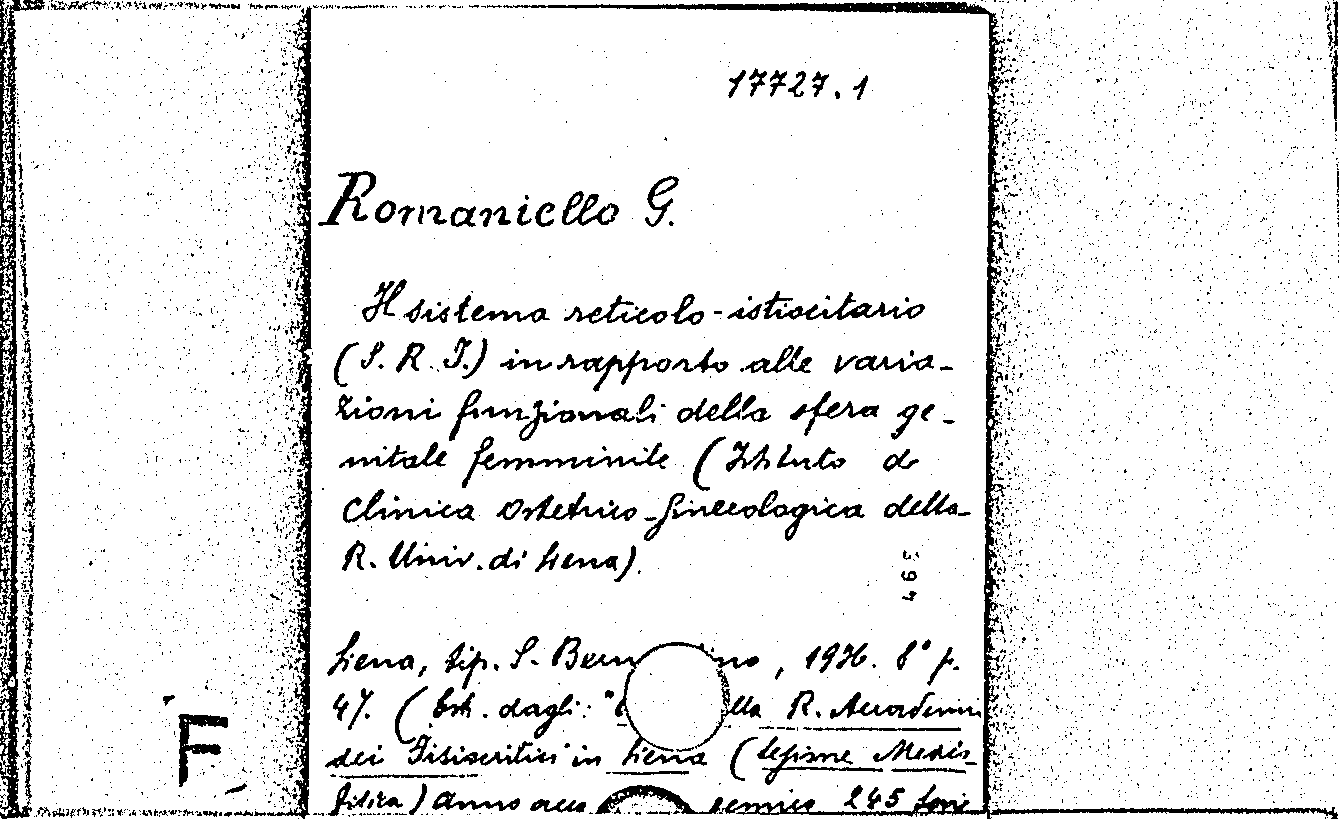 17727.1
Romaniello G.
Il sistema reticolo-istiocitario
(S. R. I.) in rapporto alle varia-
zioni funzionali della sfera ge-
nitale femminile (Istituto di
Clinica Ostetrico-ginecologica della
R. Univ. di Siena).
465
Siena, tip. S. Bern no, 8° p.
47. (Estr. dagli: " lla R. Accademia
dei Fisiocritici in Siena (Sezione Medico
Fisica) anno acca demico 245
F